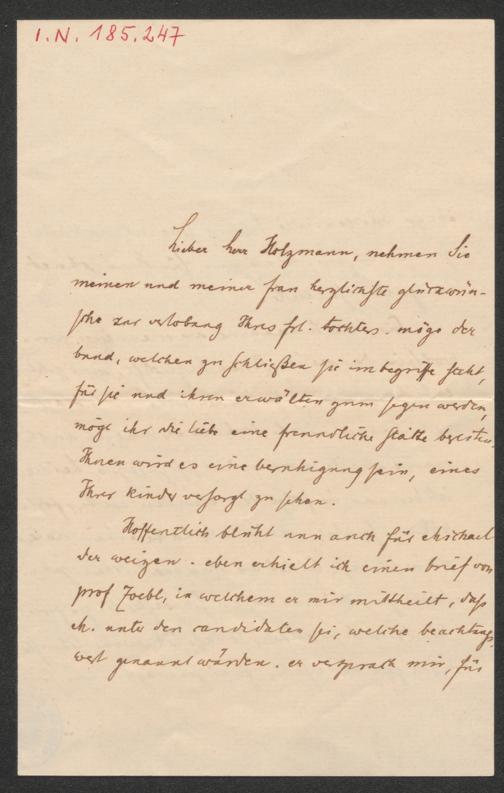 I.N. 185.247
lieber herr Holzmann, nehmen Sie
meinen und meiner frau herzlichste glückwün-
sche zur verlobung Ihres frl. tochter. möge der
bund, welchen zu schließen sie im begriffe steht,
für sie und ihren erwälten zum segen werden,
möge ihr die liebe eine freundliche stätte bereiten.
Ihnen wird es eine beruhigung sein, eines
Ihrer kinder versorgt zu sehen.
Hoffentlich blüht nun auch für Michael
der weizen. eben erhielt ich einen brief von
prof Zoebl, in welchem er mir mittheilt, dass
M. unter den candidaten sei, welche beachtungs-
wert genannt würden. er versprach mir, für